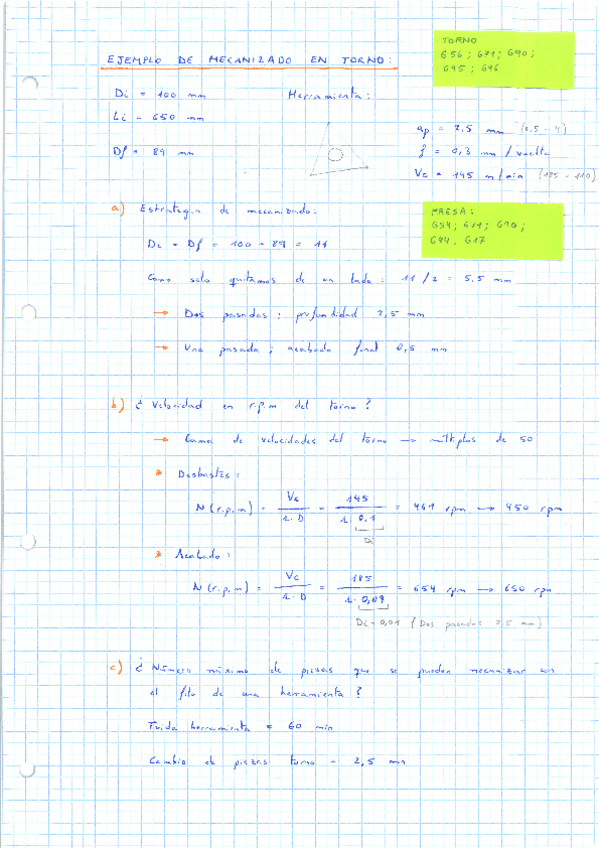 EJEMPLO DE MECANIZADO EN TORNO:
TORNO
G56; G71; G90;
G95; G96
Di = 100 mm
Herramienta:
Li = 650 mm
ap = 2,5 mm (0.5 - 4)
Df = 89 mm
f = 0,3 mm / vuelta
Vc = 145 m/min (185 - 110)
a) Estrategia de mecanizado:
FRESA:
G54; G71; G90;
G94, G17
Di - Df = 100 - 89 = 11
Como solo quitamos de un lado: 11 / 2 = 5,5 mm
→ Dos pasadas; profundidad 2,5 mm
→ Una pasada; acabado final 0,5 mm
b) ¿ Velocidad en r.p.m del torno ?
→ Gama de velocidades del torno → múltiplos de 50
* Desbastes:
N (r.p.m) = Vc / π · D = 145 / π · 0.1 = 461 rpm → 450 rpm
Di
* Acabado:
N (r.p.m) = Vc / π · D = 185 / π · 0,09 = 654 rpm → 650 rpm
Di - 0,01 (Dos pasadas 2,5 mm)
c) ¿ Número máximo de piezas que se pueden mecanizar con
el filo de una herramienta ?
Tvida herramienta = 60 min
Cambio de piezas torno = 2,5 min